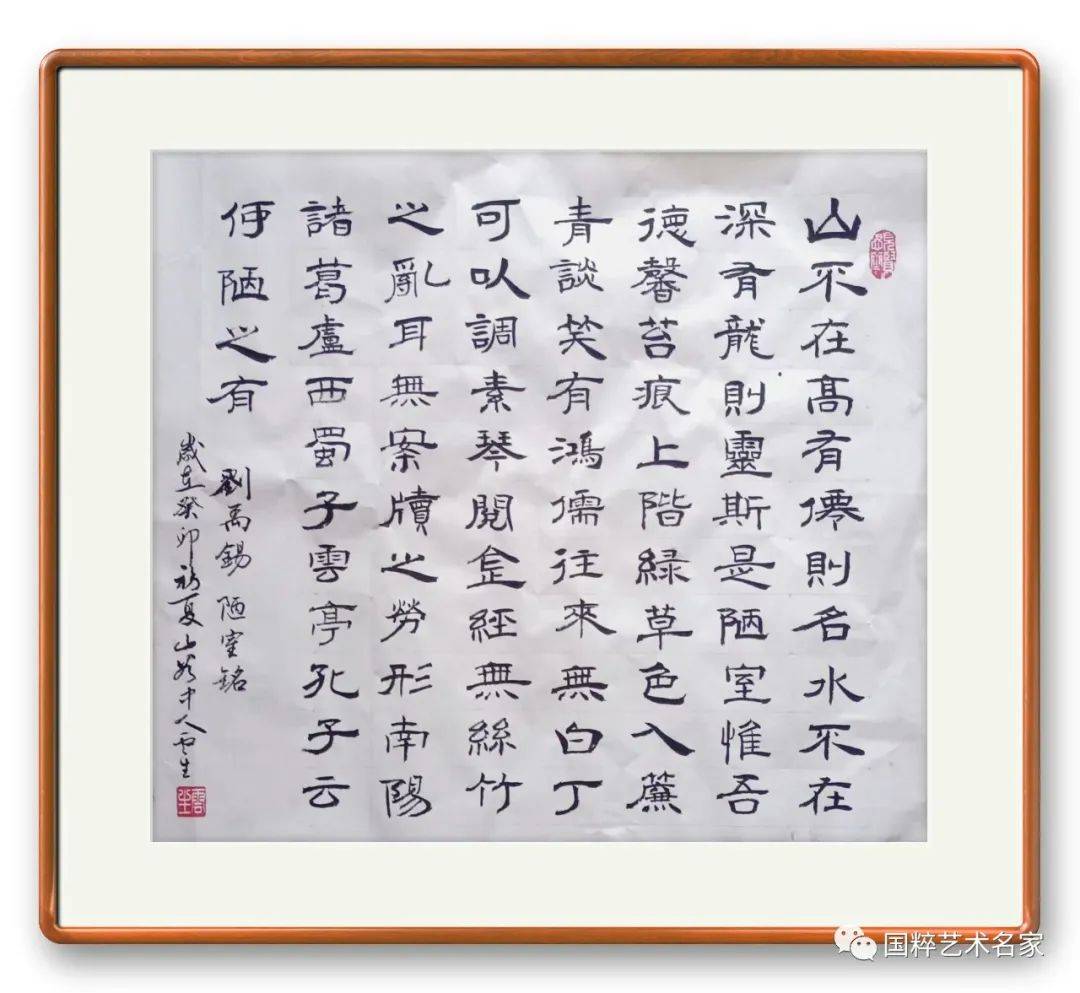 山不在高有僊則名水不在
深有龍則靈斯是陋室惟吾
德馨苔痕上階緑草色入簾
青談笑有鴻儒往來無白丁
可以調素琴閱金經無絲竹
之亂耳無案牘之勞形南陽
諸葛盧西蜀子雲亭孔子云
何陋之有
劉禹錫 陋室銘
歲在癸卯初夏山中人雲生
雲生
国粹艺术名家